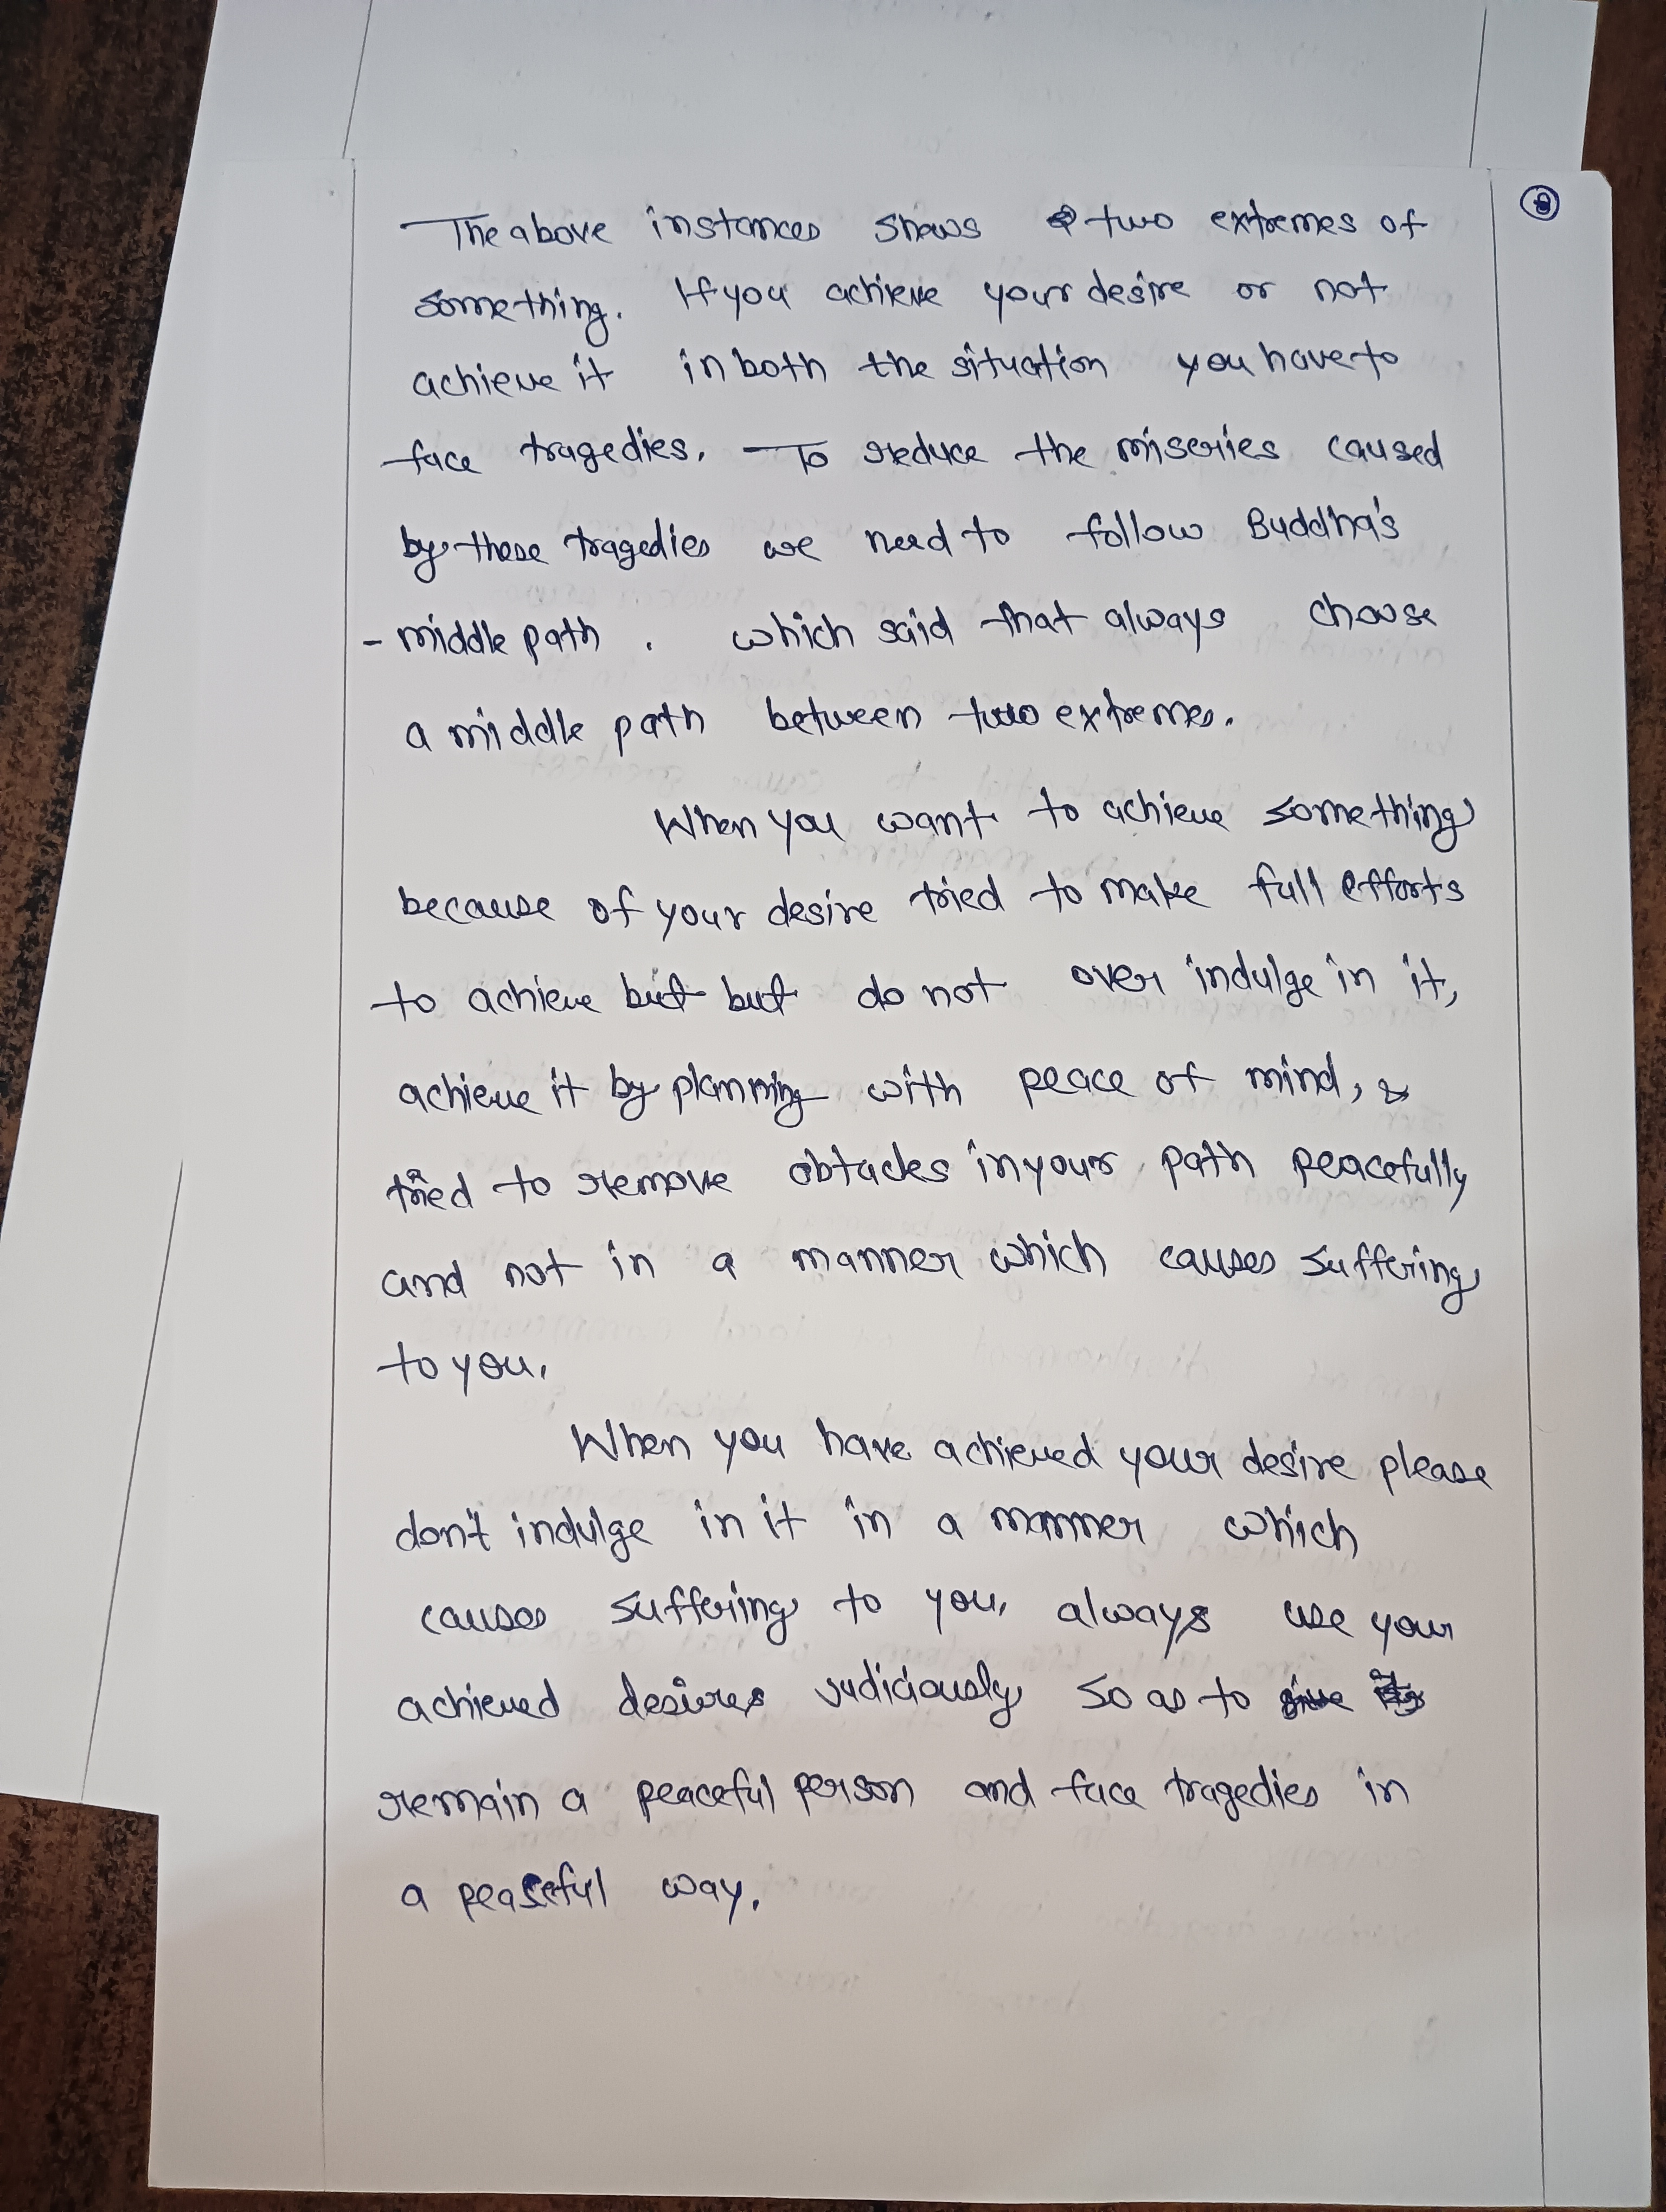 The above instances shows two extremes of
something. If you achieve your desire or not
achieve it in both the situation you have to
face tragedies. To reduce the miseries caused
by these tragedies we need to follow Buddha's
- middle path . which said that always choose
a middle path between two extremes.
When you want to achieve something
because of your desire tried to make full efforts
to achieve but but do not over indulge in it,
achieve it by planning with peace of mind, &
tried to remove obtacles in your path peacefully
and not in a manner which causes suffering
to you.
When you have achieved your desire please
don't indulge in it in a manner which
causes suffering to you, always use your
achieved desires judiciously so as to give
remain a peaceful person and face tragedies in
a peaceful way.